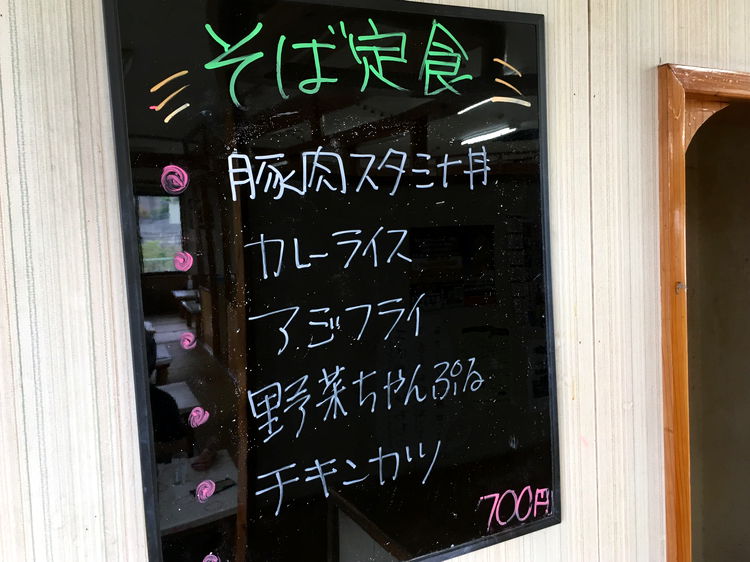 そば定食
豚肉スタミナ丼
カレーライス
アジフライ
野菜ちゃんぷる
チキンカツ
700円